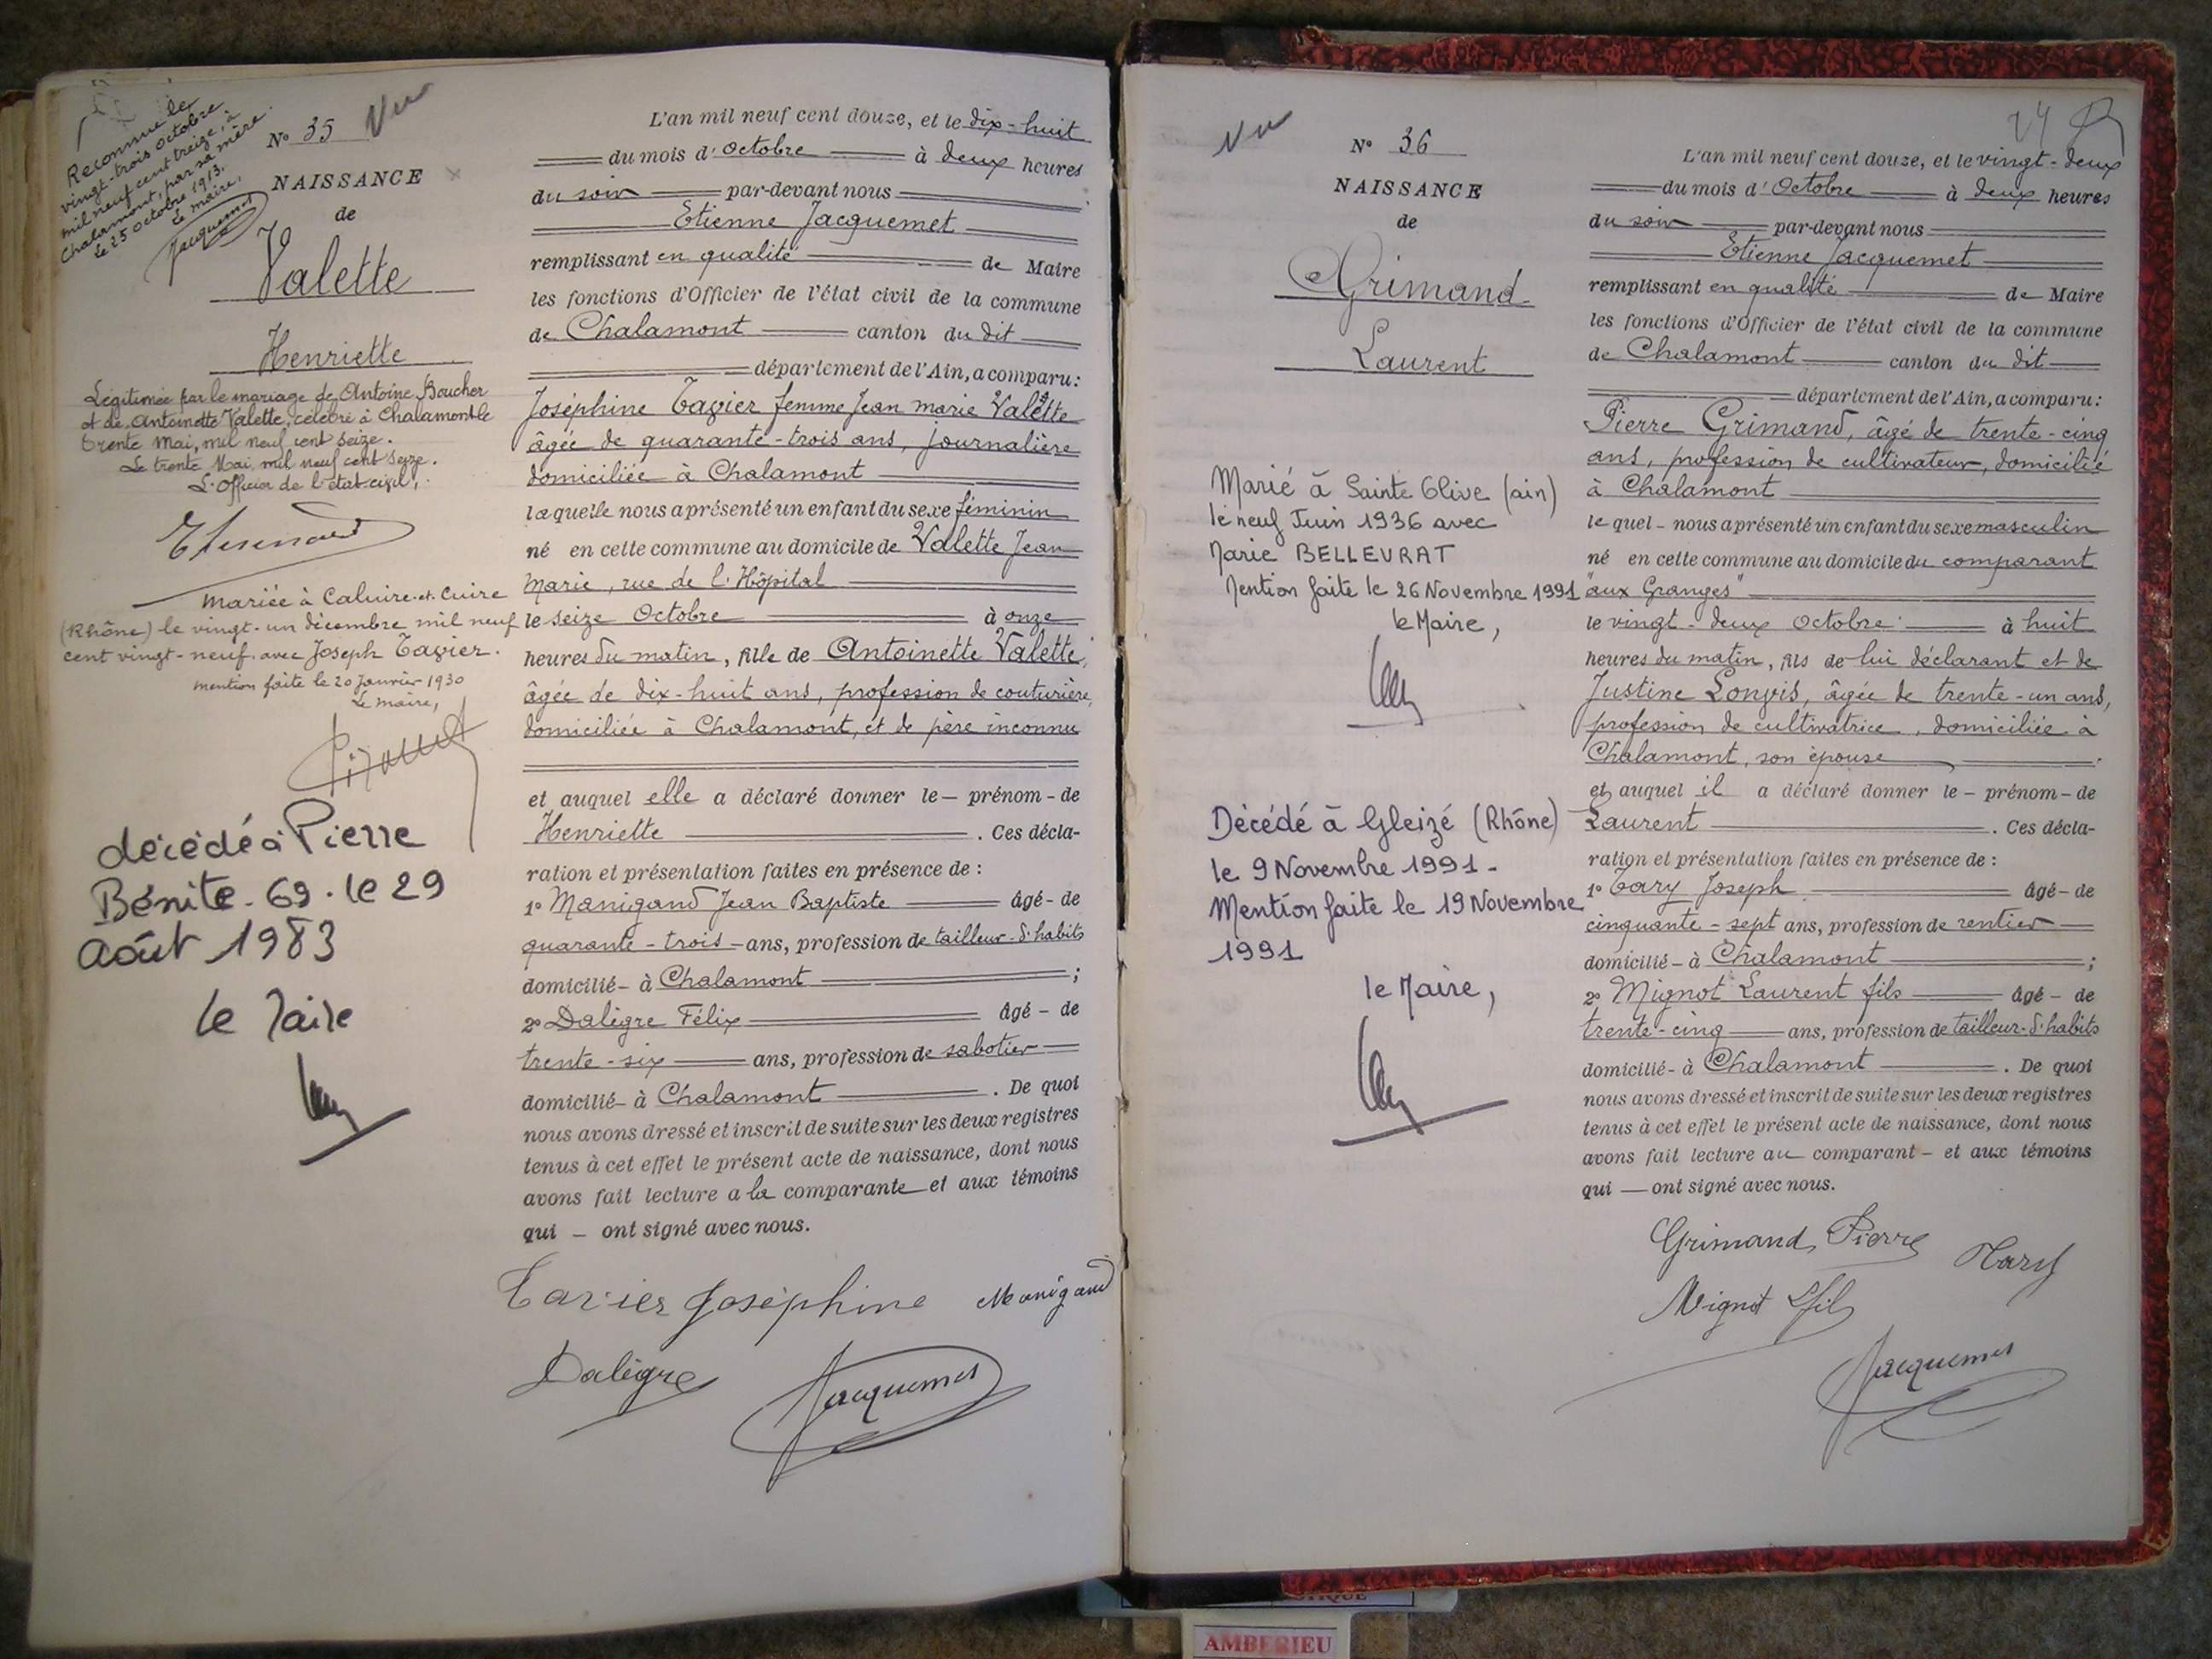 Reconnue le
vingt-trois octobre
mil neuf cent treize, à
Chalamont, par sa mère.
Le 25 octobre 1913.
Le maire,
Jacquemet
N° 35
Vu
NAISSANCE
de
Valette
Henriette
Légitimée par le mariage de Antoine Boucher
et de Antoinette Valette, célébré à Chalamont le
trente Mai, mil neuf cent seize.
Le trente Mai, mil neuf cent seize.
L'Officier de l'état-civil,
Mariée à Caluire-et-Cuire
(Rhône) le vingt-un décembre mil neuf
cent vingt-neuf avec Joseph Tavier.
mention faite le 20 Janvier 1930
Le maire,
décédé à Pierre
Bénite - 69 - le 29
Août 1983
le Maire
L'an mil neuf cent douze, et le dix-huit
du mois d'Octobre à deux heures
du soir par-devant nous
Etienne Jacquemet
remplissant en qualité de Maire
les fonctions d'Officier de l'état civil de la commune
de Chalamont canton du dit
département de l'Ain, a comparu:
Joséphine Tavier femme Jean Marie Valette
âgée de quarante-trois ans, journalière
domiciliée à Chalamont
laquelle nous a présenté un enfant du sexe féminin
né en cette commune au domicile de Valette Jean
Marie, rue de l'Hôpital
le seize Octobre à onze
heures du matin, fille de Antoinette Valette,
âgée de dix-huit ans, profession de couturière,
domiciliée à Chalamont, et de père inconnu
et auquel elle a déclaré donner le – prénom – de
Henriette . Ces décla-
ration et présentation faites en présence de :
1° Manigand Jean Baptiste âgé – de
quarante-trois – ans, profession de tailleur-d'habits
domicilié – à Chalamont ;
2° Dalègre Félix âgé – de
trente-six ans, profession de sabotier
domicilié – à Chalamont . De quoi
nous avons dressé et inscrit de suite sur les deux registres
tenus à cet effet le présent acte de naissance, dont nous
avons fait lecture a la comparante et aux témoins
qui – ont signé avec nous.
Tavier Joséphine Manigand
Dalègre Jacquemet
Vu
N° 36
NAISSANCE
de
Grimand
Laurent
Marié à Sainte Olive (ain)
le neuf Juin 1936 avec
Marie BELLEVRAT
Mention faite le 26 Novembre 1991
le Maire,
Décédé à Gleizé (Rhône)
le 9 Novembre 1991 -
Mention faite le 19 Novembre
1991
le Maire,
24
L'an mil neuf cent douze, et le vingt-deux
du mois d'Octobre à deux heures
du soir par-devant nous
Etienne Jacquemet
remplissant en qualité de Maire
les fonctions d'Officier de l'état civil de la commune
de Chalamont canton du dit
département de l'Ain, a comparu:
Pierre Grimand, âgé de trente-cinq
ans, profession de cultivateur, domicilié
à Chalamont
le quel – nous a présenté un enfant du sexe masculin
né en cette commune au domicile du comparant
"aux Granges"
le vingt-deux Octobre à huit
heures du matin, fils de lui déclarant et de
Justine Convis, âgée de trente-un ans,
profession de cultivatrice, domiciliée à
Chalamont, son épouse
et auquel il a déclaré donner le – prénom – de
Laurent . Ces décla-
ration et présentation faites en présence de :
1° Tary Joseph âgé – de
cinquante-sept ans, profession de rentier
domicilié – à Chalamont ;
2° Mignot Laurent fils âgé – de
trente-cinq ans, profession de tailleur-d'habits
domicilié – à Chalamont . De quoi
nous avons dressé et inscrit de suite sur les deux registres
tenus à cet effet le présent acte de naissance, dont nous
avons fait lecture au comparant – et aux témoins
qui — ont signé avec nous.
Grimand Pierre Tary
Mignot L fils
Jacquemet
AMBERIEU